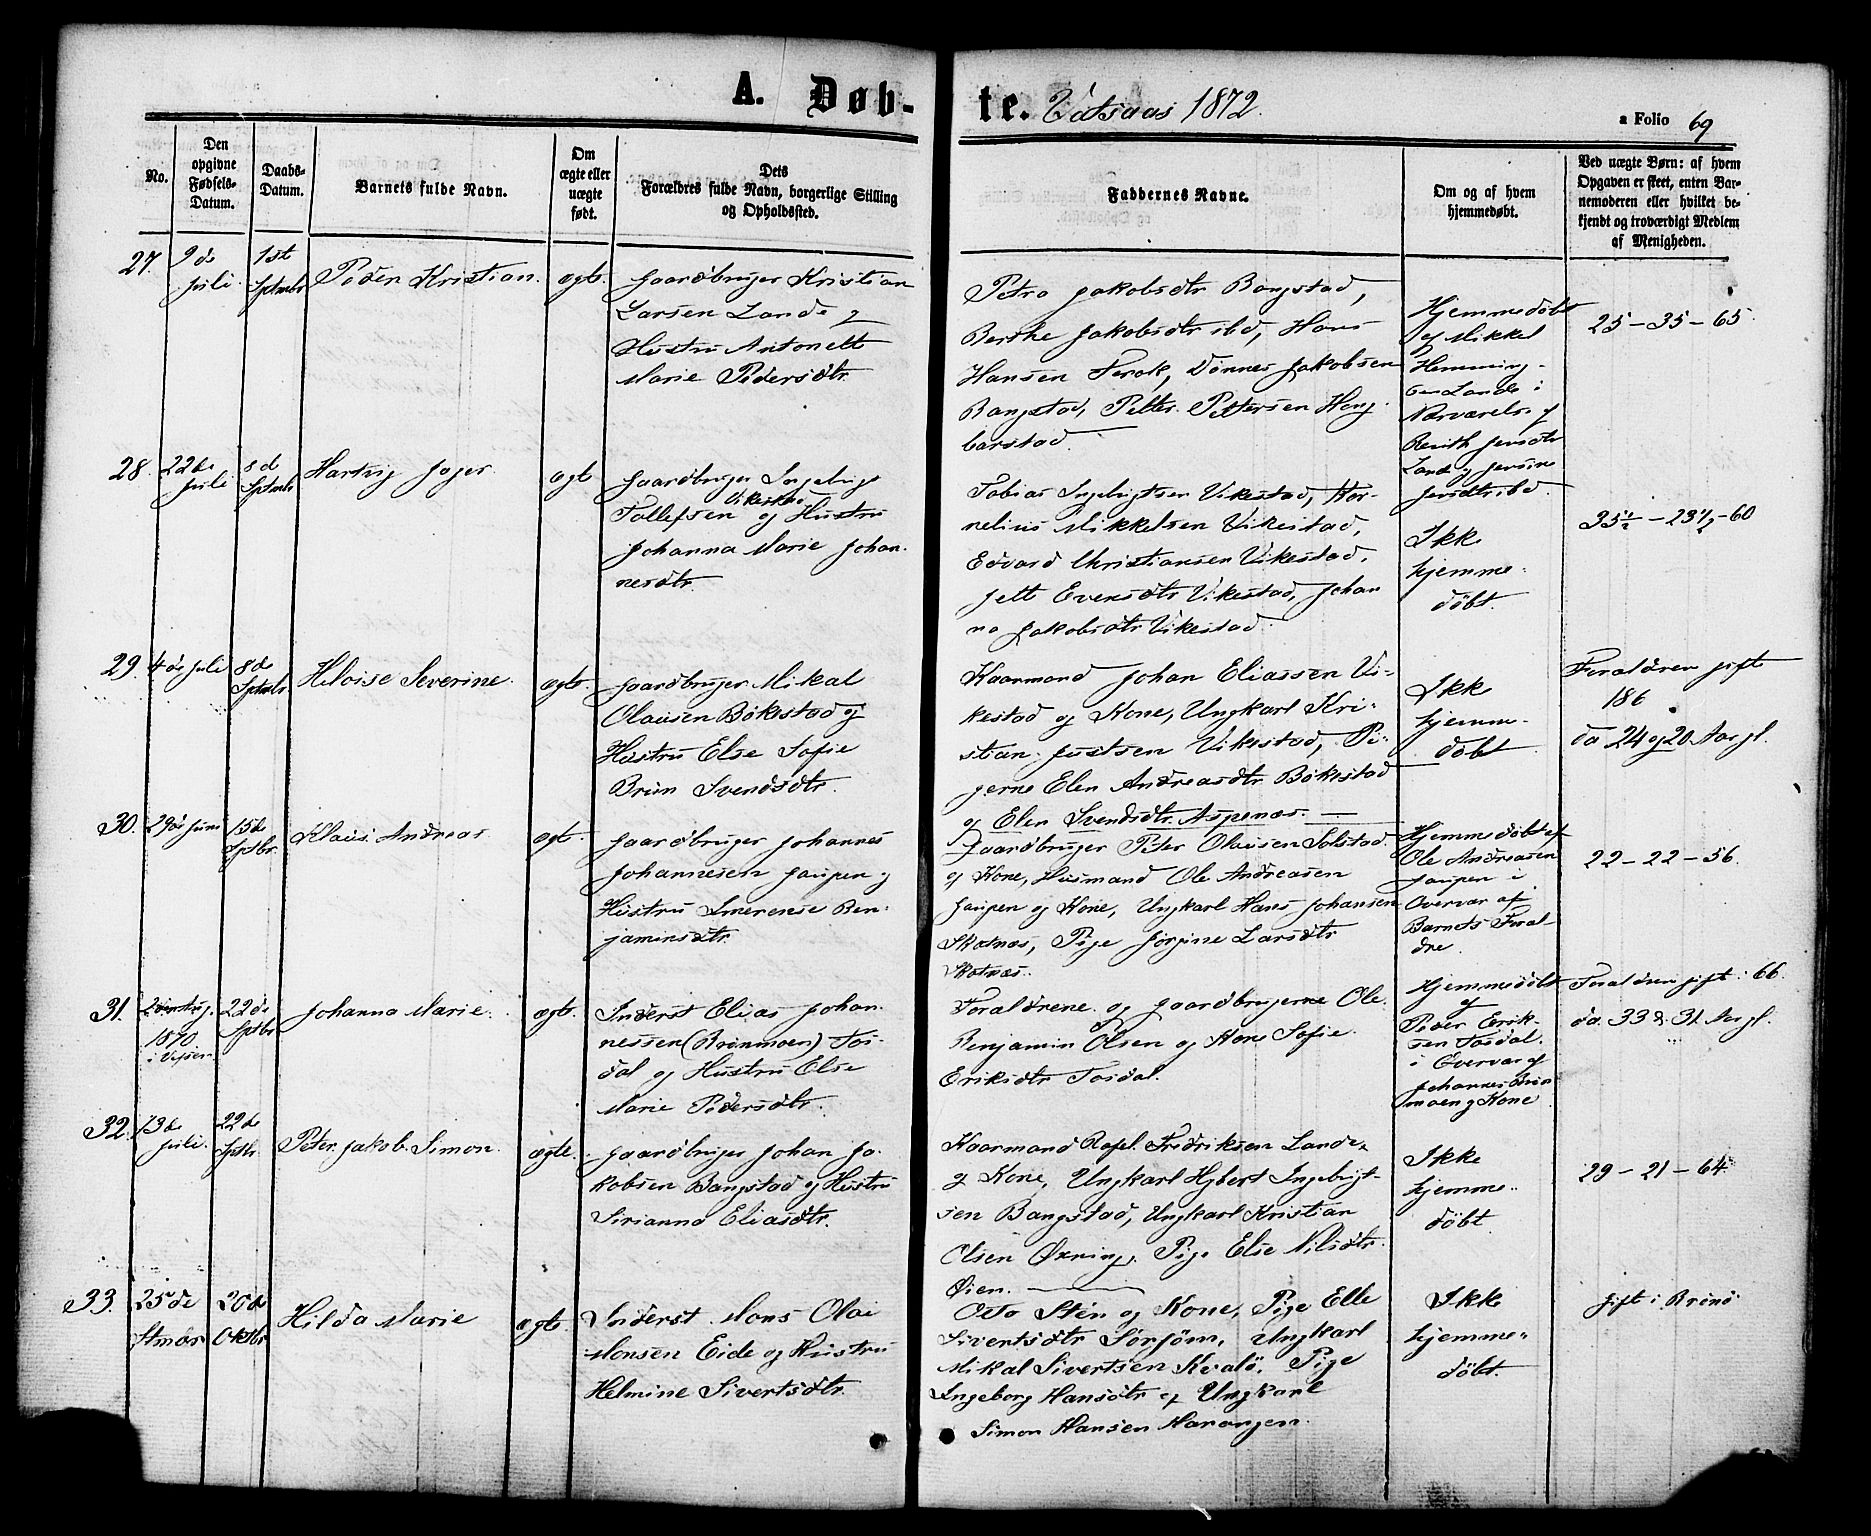 A. Døb-
te. Vatsaas 1872.
a Folio 69
No.
Den
opgivne
Fødsels-
Datum.
Daabs-
Datum.
Barnets fulde Navn.
Om
ægte eller
uægte
født.
Dets
Forældres fulde Navn, borgerlige Stilling
og Opholdssted.
Faddernes Navne.
Om og af hvem
hjemmedøbt.
Ved uægte Børn: af hvem
Opgaven er skeet, enten Bar-
nemoderen eller hvilket be-
kjendt og troværdigt Medlem
af Menigheden.
27.
9de
Juli.
1st
Sptmbr
Peder Kristian.
ægte.
Gaardbruger Kristian
Larsen Lande og
Hustru Antonette
Marie Pedersdtr.
Petra Jakobsdtr Bangstad,
Berthe Jakobsdtr ibd, Hans
Hansen Terak, Dønnes Jakobsen
Bangstad, Petter Pettersen Hong-
barstad.
Hjemmedöbt
af Mikkel
Hemming-
sen Lande i
Nærværelse af
Berith Jensdtr
Lande og Jensine
Jensdtr ibd.
25 - 35 - 65.
28.
22de
Juli
8d
Sptmbr
Hartvig Jager
ægte
Gaardbruger Ingebrigt
Tollefsen Vikestad og Hustru
Johanna Marie Johan-
nesdtr.
Tobias Ingebrigtsen Vikestad, Kor-
nelius Mikkelsen Vikestad,
Edvard Christiansen Vikestad,
Jette Evensdtr Vikestad, Johan
na Jakobsdtr Vikestad.
Ikke
hjemme-
döbt.
35½ - 23½ - 60
29.
4de Juli
8de
Sptmbr
Heloise Severine.
ægte.
Gaardbruger Mikal
Olausen Bökestad og
Hustru Else Sofie
Brun Svendsdtr.
Kaarmand Johan Eliassen Vi-
kestad og Kone, Ungkarl Kri-
stian Justsen Vikestad, Pi-
gerne Elen Andreasdtr Bökestad
og Elen Svendsdtr Aspenæs.
Ikke
hjemme-
döbt.
Foraldren gift
186
da 24 og 20 Aar gl.
30.
29de Juni
15de
Sptbr.
Klaus Andreas
ægte.
Gaardbruger Johannes
Johannesen Gaupen og
Hustru Imerense Ben-
jaminsdtr.
Gaardbruger Peter Olausen Solstad
og Kone, Husmand Ole Andreasen
Gaupen og Kone, Ungkarl Hans Johansen
Skotnæs, Pige Jorgine Larsdtr
Skotnæs.
Hjemmedöbt af
Ole Andreasen
Gaupen i
Overvær af
Barnets Foral-
dre.
22 - 22 - 56.
31.
1870
i Vefsen
22de
Sptbr
Johanna Marie.
ægte.
Inderst Elias Johan-
nessen (Brönmoen) Tos-
dal og Hustru Else
Marie Pedersdtr.
Foraldrene og Gaardbrugerne Ole
Benjamin Olsen og Kone Sofie
Eriksdtr Tosdal.
Hjemmedöbt
af
Peder Erik-
sen Tosdal
i Overvær af
Johannes Brön
moen og Kone
Foraldren gift. 66
da 33 & 31 Aar gl.
32.
13de
Juli.
22de
Sptbr.
Peter Jakob Simon.
ægte.
Gaardbruger Johan Ja-
kobsen Bangstad og Hustru
Sirianna Eliasdtr.
Kaarmand Rafel Fredriksen Lande
og Kone, Ungkarl Hybert Ingebrigt-
sen Bangstad, Ungkarl Kristian
Olsen Øxning, Pige Else Nilsdtr.
Øien.
Ikke
hjemme-
döbt
29 - 21 - 64.
33.
25de
20de
Oktbr.
Hilda Marie
ægte.
Inderst Mons Olai
Monsen Eide og Hustru
Helmine Sivertsdtr.
Otto Sten og Kone, Pige Elle
Sivertsdtr Sørjöm, Ungkarl
Mikal Sivertsen Kvalö, Pige
Ingeborg Hansdtr og Ungkarl
Simon Hansen Harangen.
Ikke
hjemme-
döbt.
gift i Brönö